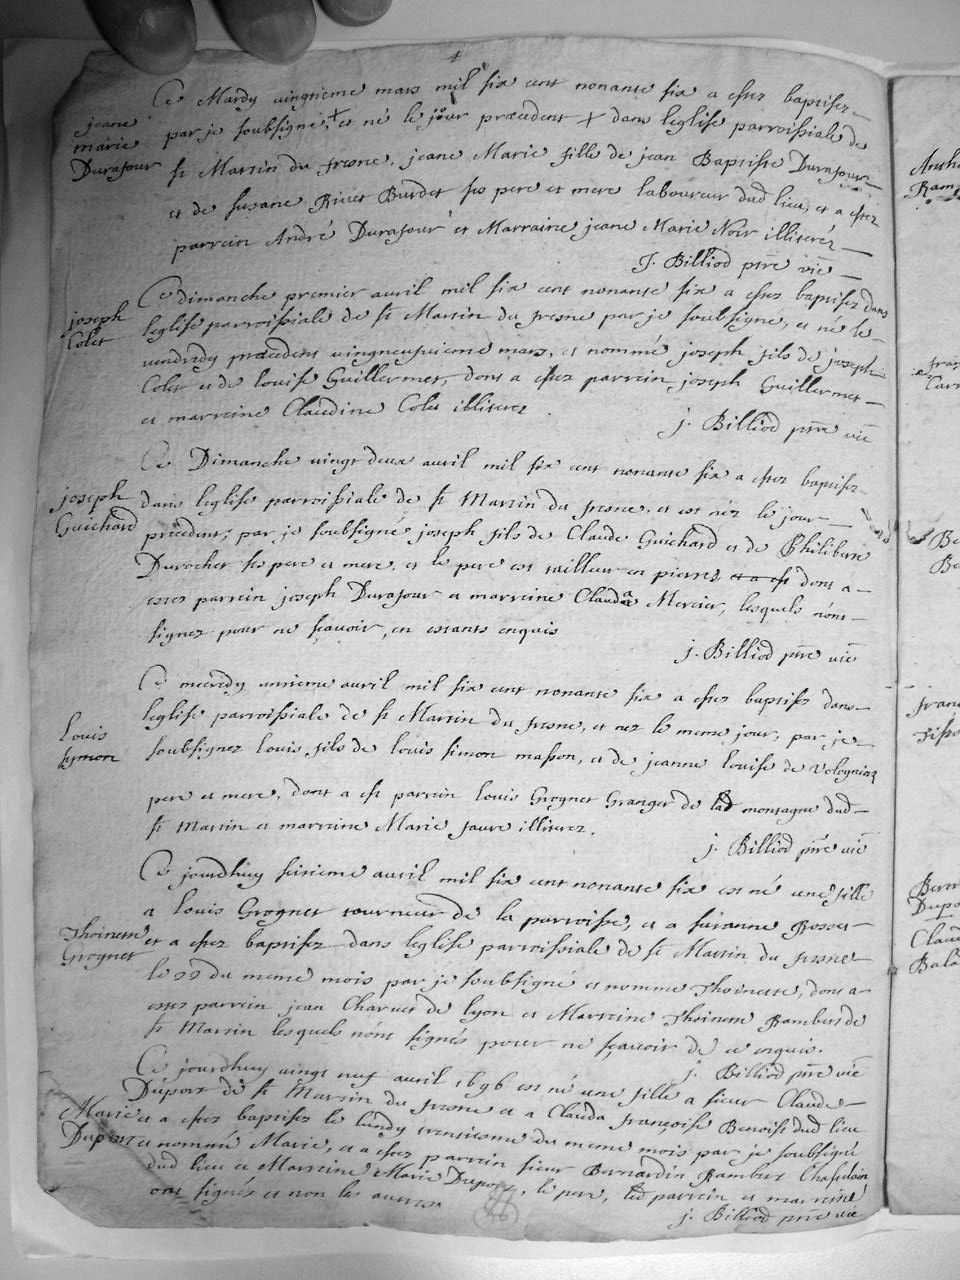 jeane
marie
Durafour
Ce Mardy vingtieme mars mil six cent nonante six a estez baptisez
par je soubsigné, + et né le jour præcedent + dans leglise parroissiale de
st Martin du fresne, jeane Marie fille de jean Baptiste Durafour
et de susane Rivet Burdet ses pere et mere laboureur dud lieu, et a estez
parrein André Durafour et Marraine jeane Marie Noir illiterez
J. Billiod ptre vic
joseph
Colet
Ce dimanche premier avril mil six cent nonante six a estez baptisez dans
leglise parroissiale de st Martin du fresne par je soubsigne, et né le
vendredy præcedent vingneufvieme mars, et nommé joseph fils de joseph
Colet et de louise Guillermet, dont a estez parrein joseph Guillermet
et marreine Claudine Colet illiterez
j. Billiod ptre vic
joseph
Guichard
Ce Dimanche vingt deux avril mil six cent nonante six a estez baptisez
dans leglise parroissiale de st Martin du fresne, et est néz le jour
præcedent, par je soubsigné joseph fils de Claude Guichard et de Philiberte
Durochet ses pere et mere, et le pere est tailleur en pierres et a est dont a
estez parrein joseph Durafour et marreine Clauda Mercier, lesquels nont
signez pour ne scavoir, en estants enquis
j. Billiod ptre vic
Louis
symon
Ce mecredy unzieme avril mil six cent nonante six a estez baptisez dans
leglise parroissiale de st Martin du fresne, et nez le meme jour, par je
soubsignez louis, fils de louis simon masson, et de jeanne louise de Vologniaz
pere et mere, dont a est parrein louis Grognet Granger de montagne dud
st Martin et marreine Marie favre illiterez.
j. Billiod ptre vic
Thoinette
Grognet
Ce jourdhuy seizieme avril mil six cent nonante six est né une fille
a louis Grognet tourneur de la parroisse, et a susanne Rosset
et a estez baptisez dans leglise parroissiale de st Martin du fresne
le 22 du meme mois par je soubsigné et nomme Thoinette, dont a
estez parrein jean Charvet de lyon et Marreine Thoinette Rambert de
st Martin lesquels nont signés pour ne sçavoir de ce enquis.
j. Billiod ptre vic
Marie
Duport
Ce jourdhuy vingt neuf avril 1696 est né une fille a sieur Claude
Duport de st Martin du fresne et a Clauda françoise Benoist dud lieu
et a estez baptisez le lundy trentieme du meme mois par je soubsigné
et nommé Marie, et a estez parrein sieur Bernardin Rambert Chastelain
dud lieu et Marreine Marie Duport, le pere, led parrein et marreine
ont signés et non les autres
j. Billiod ptre vic